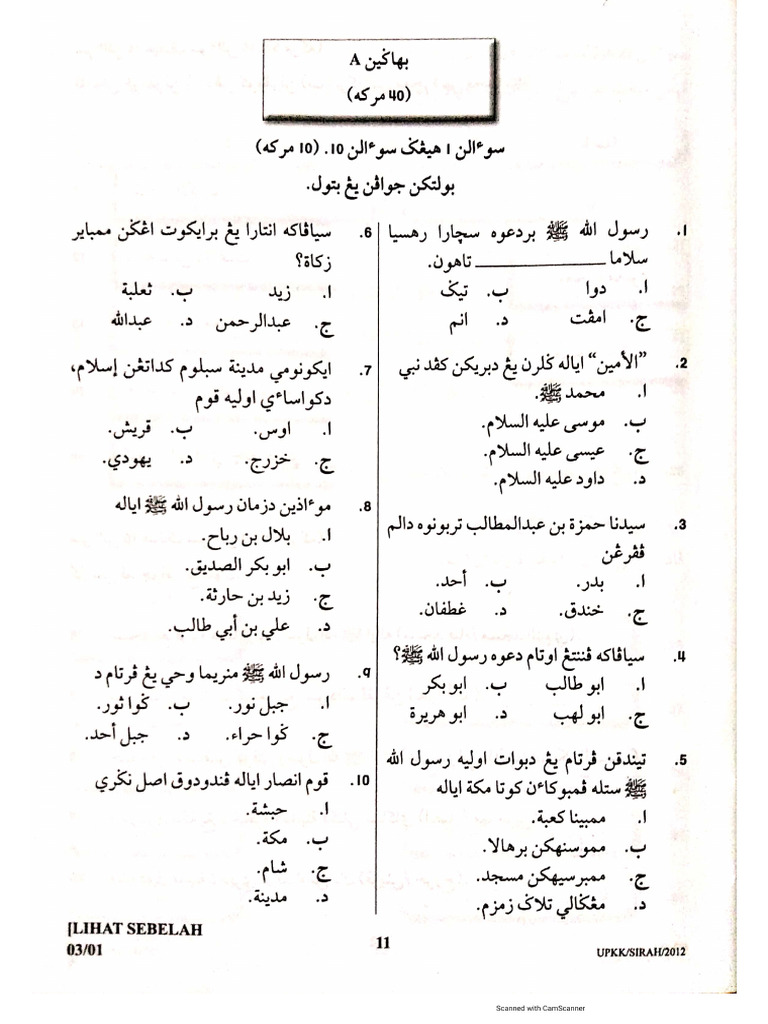 بهاݢين A
(40 مركه)
سوءالن 1 هيڠݢ سوءالن 10. (10 مركه)
بولتكن جواڤن يڠ بتول.
1. رسول الله ﷺ بردعوه سچارا رهسيا
سلاما ______________ تاهون.
ا. دوا ب. تيݢ
ج. امڤت د. انم
2. "الأمين" اياله ݢلرن يڠ دبريكن كڤد نبي
ا. محمد ﷺ.
ب. موسى عليه السلام.
ج. عيسى عليه السلام.
د. داود عليه السلام.
3. سيدنا حمزة بن عبدالمطالب تربونوه دالم
ڤڤرڠن
ا. بدر. ب. أحد.
ج. خندق. د. غطفان.
4. سياڤاكه ڤننتڠ اوتام دعوه رسول الله ﷺ؟
ا. ابو طالب ب. ابو بكر
ج. ابو لهب د. ابو هريرة
5. تيندقن ڤرتام يڠ دبوات اوليه رسول الله
ﷺ ستله ڤمبوكاءن كوتا مكة اياله
ا. ممبينا كعبة.
ب. مموسنهكن برهالا.
ج. ممبرسيهكن مسجد.
د. مڠݢالي تلاݢ زمزم.
6. سياڤاكه انتارا يڠ برايكوت اڠݢن ممباير
زكاة؟
ا. زيد ب. ثعلبة
ج. عبدالرحمن د. عبدالله
7. ايكونومي مدينة سبلوم كداتڠن إسلام،
دكواساءي اوليه قوم
ا. اوس. ب. قريش.
ج. خزرج. د. يهودي.
8. موءاذين دزمان رسول الله ﷺ اياله
ا. بلال بن رباح.
ب. ابو بكر الصديق.
ج. زيد بن حارثة.
د. علي بن أبي طالب.
9. رسول الله ﷺ منريما وحي يڠ ڤرتام د
ا. جبل نور. ب. ݢوا ثور.
ج. ݢوا حراء. د. جبل أحد.
10. قوم انصار اياله ڤندودوق اصل نݢري
ا. حبشة.
ب. مكة.
ج. شام.
د. مدينة.
[LIHAT SEBELAH
03/01
11
UPKK/SIRAH/2012
Scanned with CamScanner